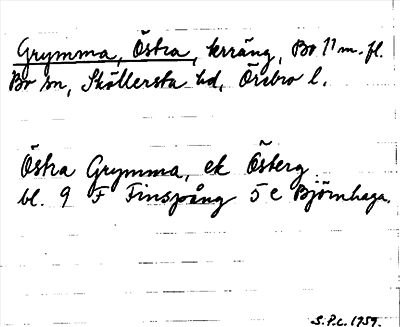 Grymma, Östra, krräng, Bo 11 m.fl.
Bo sn, Sköllersta hd, Örebro l.
Östra Grymma, ek Österg
bl. 9 F Finspång 5 e Björnhaga.
S.P.C. 1959.